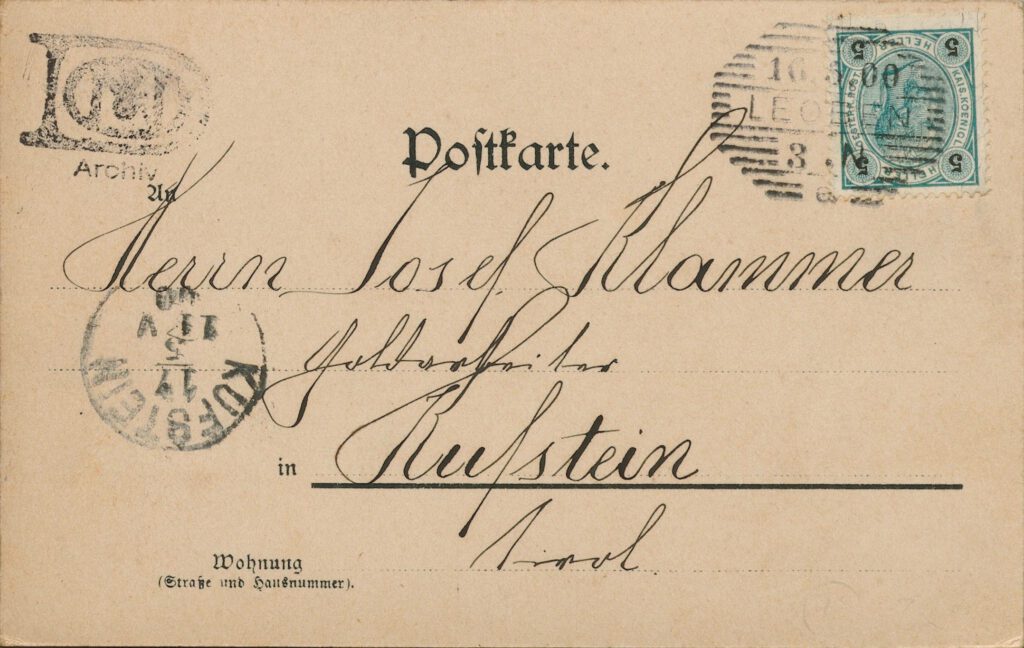 Archiv
Postkarte.
16.5.00
LEOBEN
3.N
a
5
5
5
5
KAIS. KOENIGL.
HELLER
An
Herrn Josef Klammer
Goldarbeiter
in Kufstein
Tirol
KUFSTEIN
17
5
11 V
00
Wohnung
(Straße und Hausnummer).